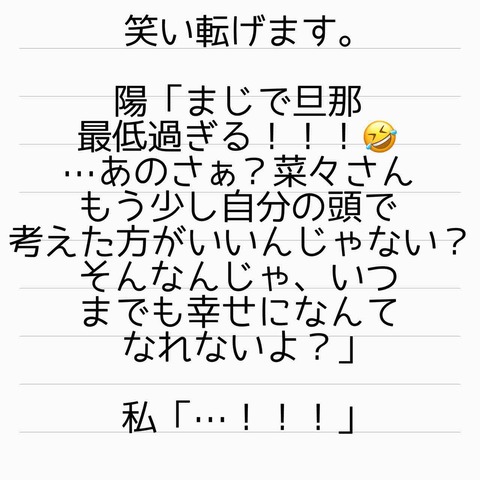 笑い転げます。
陽「まじで旦那
最低過ぎる！！！🤣
…あのさぁ？菜々さん
もう少し自分の頭で
考えた方がいいんじゃない？
そんなんじゃ、いつ
までも幸せになんて
なれないよ？」
私「…！！！」